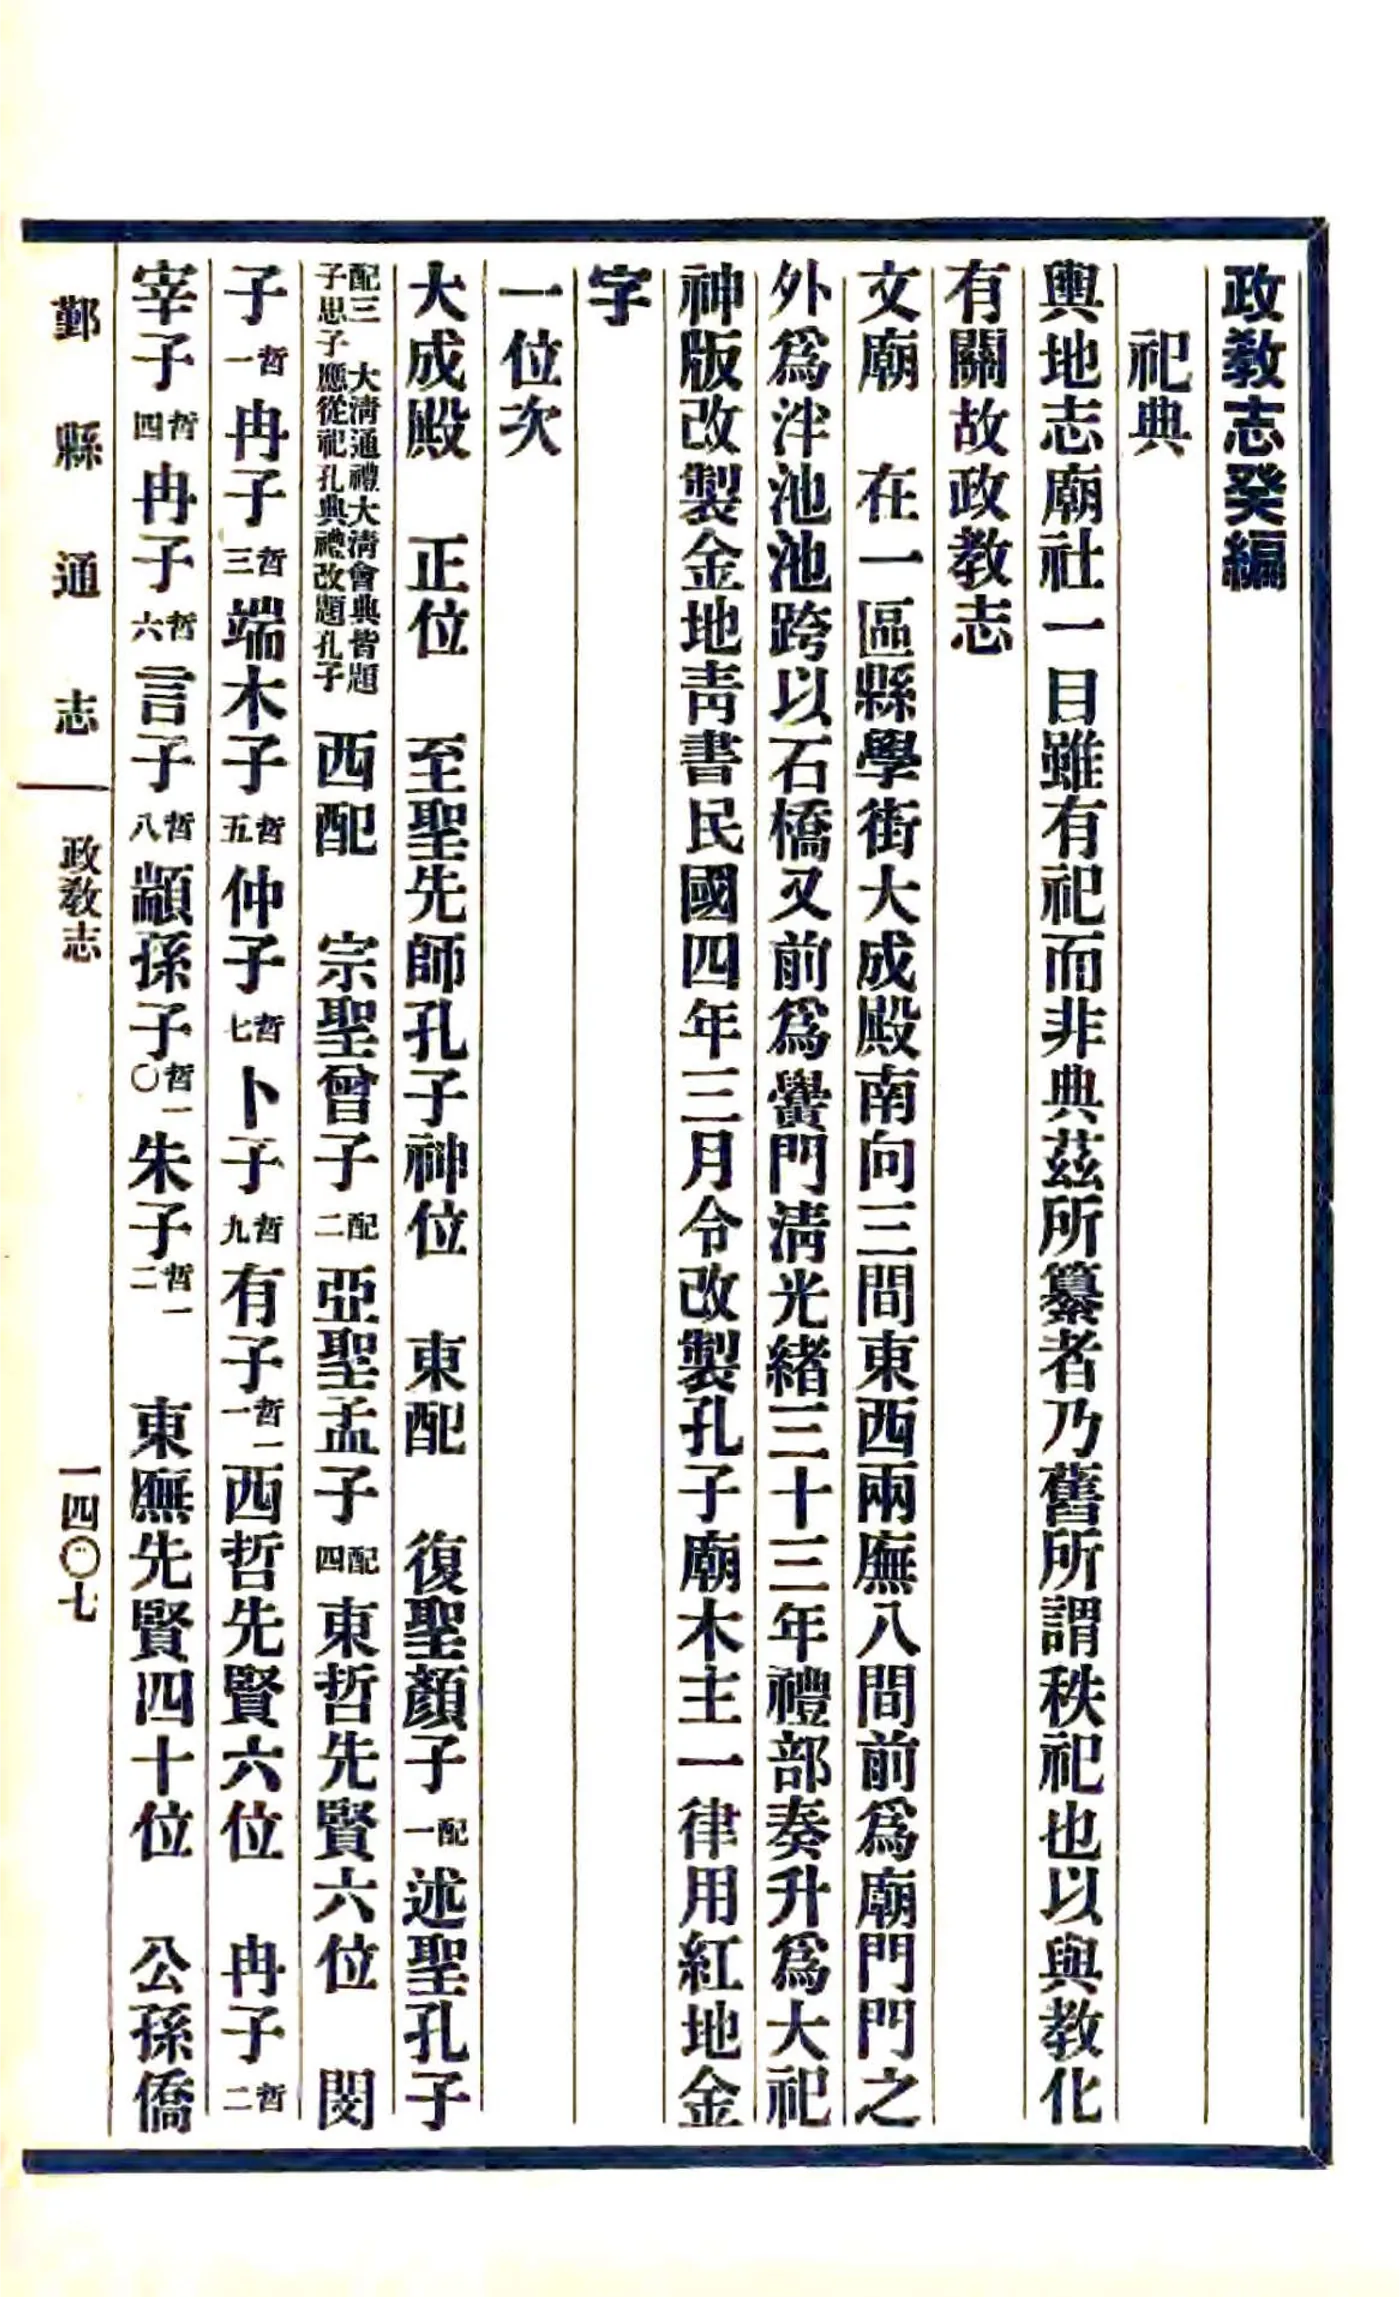 政敎志癸編
祀典
輿地志廟社一目雖有祀而非典茲所纂者乃舊所謂秩祀也以與敎化
有關故政敎志
文廟　在一區縣學街大成殿南向三間東西兩廡八間前爲廟門門之
外爲泮池池跨以石橋又前爲黌門淸光緖三十三年禮部奏升爲大祀
神版改製金地靑書民國四年三月令改製孔子廟木主一律用紅地金
字
一位次
大成殿　正位　至聖先師孔子神位　東配　復聖顏子配一述聖孔子
配三　大淸通禮大淸會典皆題子思子應從祀孔典禮改題孔子　西配　宗聖曾子配二亞聖孟子配四東哲先賢六位　閔
子哲一冉子哲三端木子哲五仲子哲七卜子哲九有子哲一一西哲先賢六位　冉子哲二
宰子哲四冉子哲六言子哲八顓孫子哲一〇朱子哲一二　東廡先賢四十位　公孫僑
鄞縣通志
政敎志
一四〇七